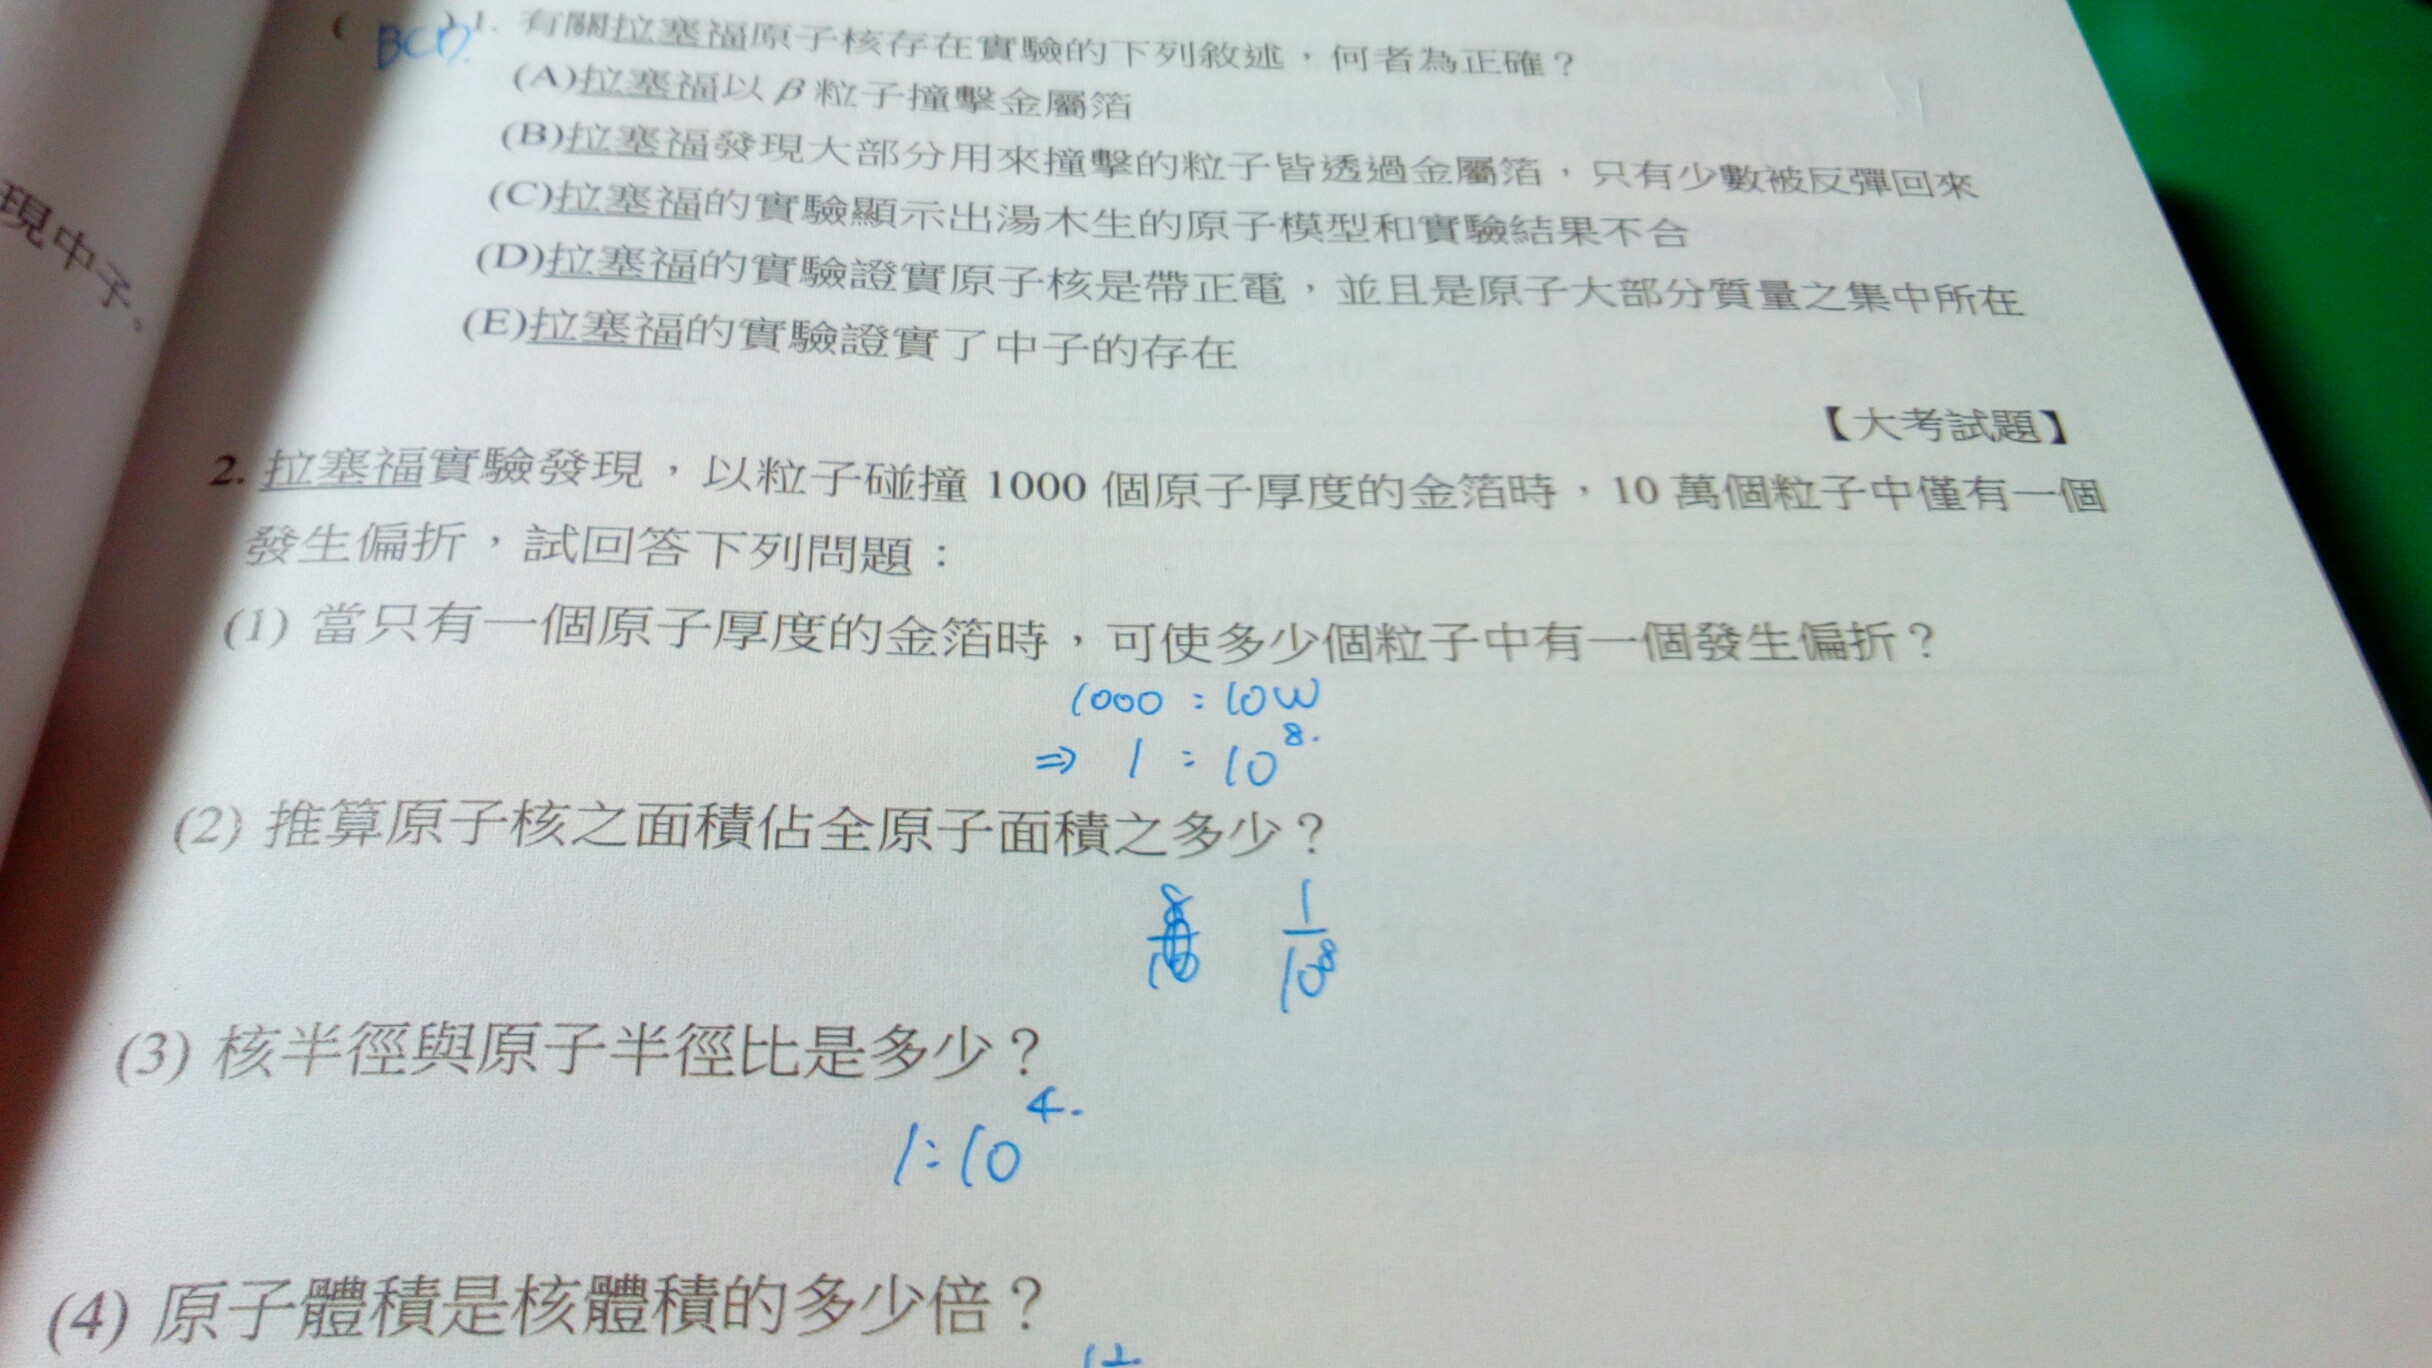 現中子。
( BCD. ) 1. 有關拉塞福原子核存在實驗的下列敘述，何者為正確？
(A)拉塞福以β粒子撞擊金屬箔
(B)拉塞福發現大部分用來撞擊的粒子皆透過金屬箔，只有少數被反彈回來
(C)拉塞福的實驗顯示出湯木生的原子模型和實驗結果不合
(D)拉塞福的實驗證實原子核是帶正電，並且是原子大部分質量之集中所在
(E)拉塞福的實驗證實了中子的存在
【大考試題】
2. 拉塞福實驗發現，以粒子碰撞 1000 個原子厚度的金箔時，10 萬個粒子中僅有一個
發生偏折，試回答下列問題：
(1) 當只有一個原子厚度的金箔時，可使多少個粒子中有一個發生偏折？
1000 : 10W
⇒ 1 : 10⁸.
(2) 推算原子核之面積佔全原子面積之多少？
1/10⁸
(3) 核半徑與原子半徑比是多少？
1:10⁴.
(4) 原子體積是核體積的多少倍？